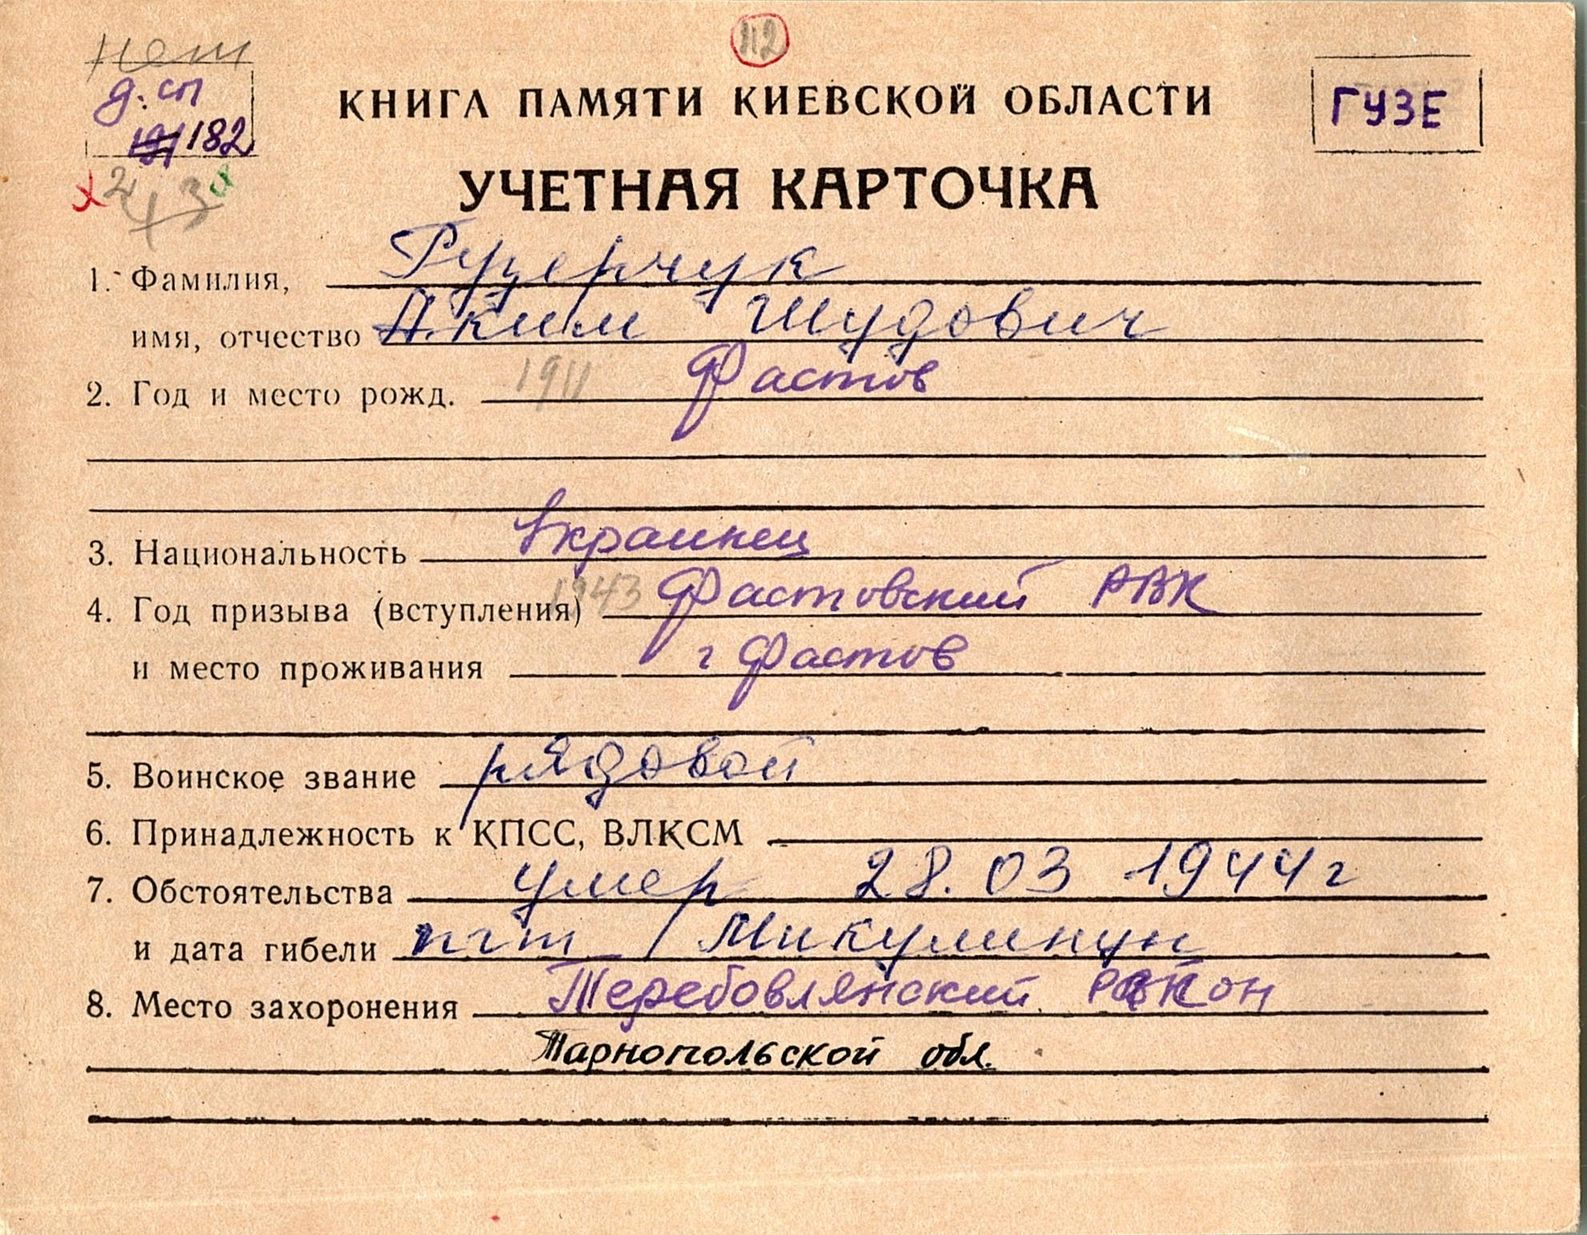 112
нет
д. сп
191 182
КНИГА ПАМЯТИ КИЕВСКОЙ ОБЛАСТИ
ГУЗЕ
243
УЧЕТНАЯ КАРТОЧКА
1. Фамилия, Гузерчук
имя, отчество Аким Шудович
2. Год и место рожд. 1911 Фастов
3. Национальность Украинец
4. Год призыва (вступления) 1943 Фастовский РВК
и место проживания г Фастов
5. Воинское звание рядовой
6. Принадлежность к КПСС, ВЛКСМ
7. Обстоятельства умер 28.03 1944 г
и дата гибели пгт Микулинцы
8. Место захоронения Теребовлянский район
Тарнопольской обл.